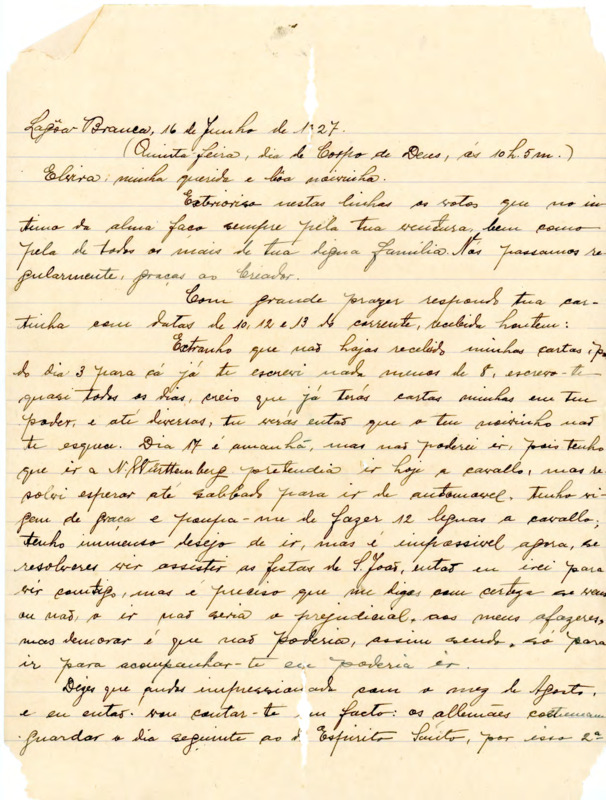 Lagôa Branca, 16 de Junho de 1927.
(Quinta feira, dia de Corpo de Deus, ás 10 h. 5 m.)
Elvira: minha querida e bôa noivinha.
Exteriorizo nestas linhas os votos que no in-
timo da alma faço sempre pela tua ventura, bem como
pela de todos os mais de tua digna familia. Nós passamos re-
gularmente, graças ao Creador.
Com grande prazer respondo tua car-
tinha com datas de 10, 12 e 13 do corrente, recebida hontem:
Extranho que não hajas recebido minhas cartas,
do dia 3 para cá já te escrevi nada menos de 8, escrevo-te
quasi todos os dias, creio que já terás cartas minhas em teu
poder, e até diversas, tu verás então que o teu noivinho não
te esquece. Dia 17 é amanhã, mas não poderei ir, pois tenho
que ir a N. Württemberg pretendia ir hoje a cavallo, mas re-
solvi esperar até sabbado para ir de automovel. tenho via-
gem de graça e poupa-me de fazer 12 leguas a cavallo;
tenho immenso desejo de ir, mas é impossivel agora, se
resolveres vir assistir as festas de S. João, então eu irei para
vir comtigo, mas é preciso que me digas com certeza se vens
ou não, o ir não seria o prejudicial, aos meus afazeres,
mas demorar é que não poderia, assim sendo, só para
ir para acompanhar-te eu poderia ir.
Dizes que andas impressionada com o mez de Agosto,
e eu então vou contar-te um facto: os allemães costumam
guardar o dia seguinte ao d' Espirito Santo, por isso 2ª